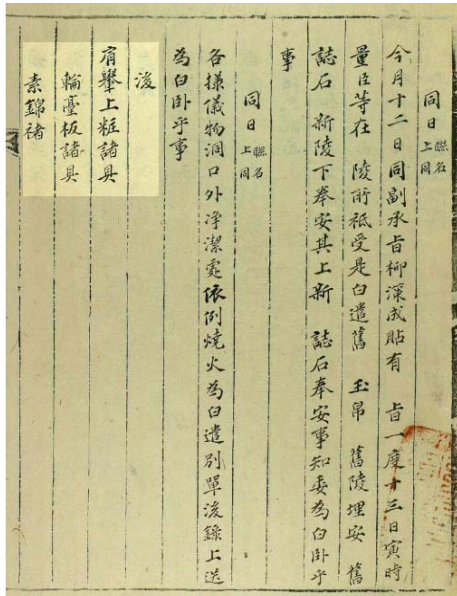 同日 聯名上同
今月十二日同副承旨柳深成貼有 旨一度十三日寅時
量臣等在 陵所祗受是白遣舊 玉帛 舊陵埋安舊
誌石 新陵下奉安其上新 誌石奉安事知委爲白卧乎
事
同日 聯名上同
各㨾儀物洞口外淨潔處依例燒火爲白遣別單後錄上送
爲白卧乎事
後
肩轝上粧諸具
輪臺板諸具
素錦褚